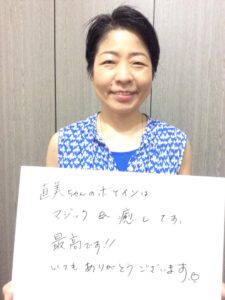 直美ちゃんのボイスは
マジック & 癒しです。
最高です!!
いつもありがとうございます。